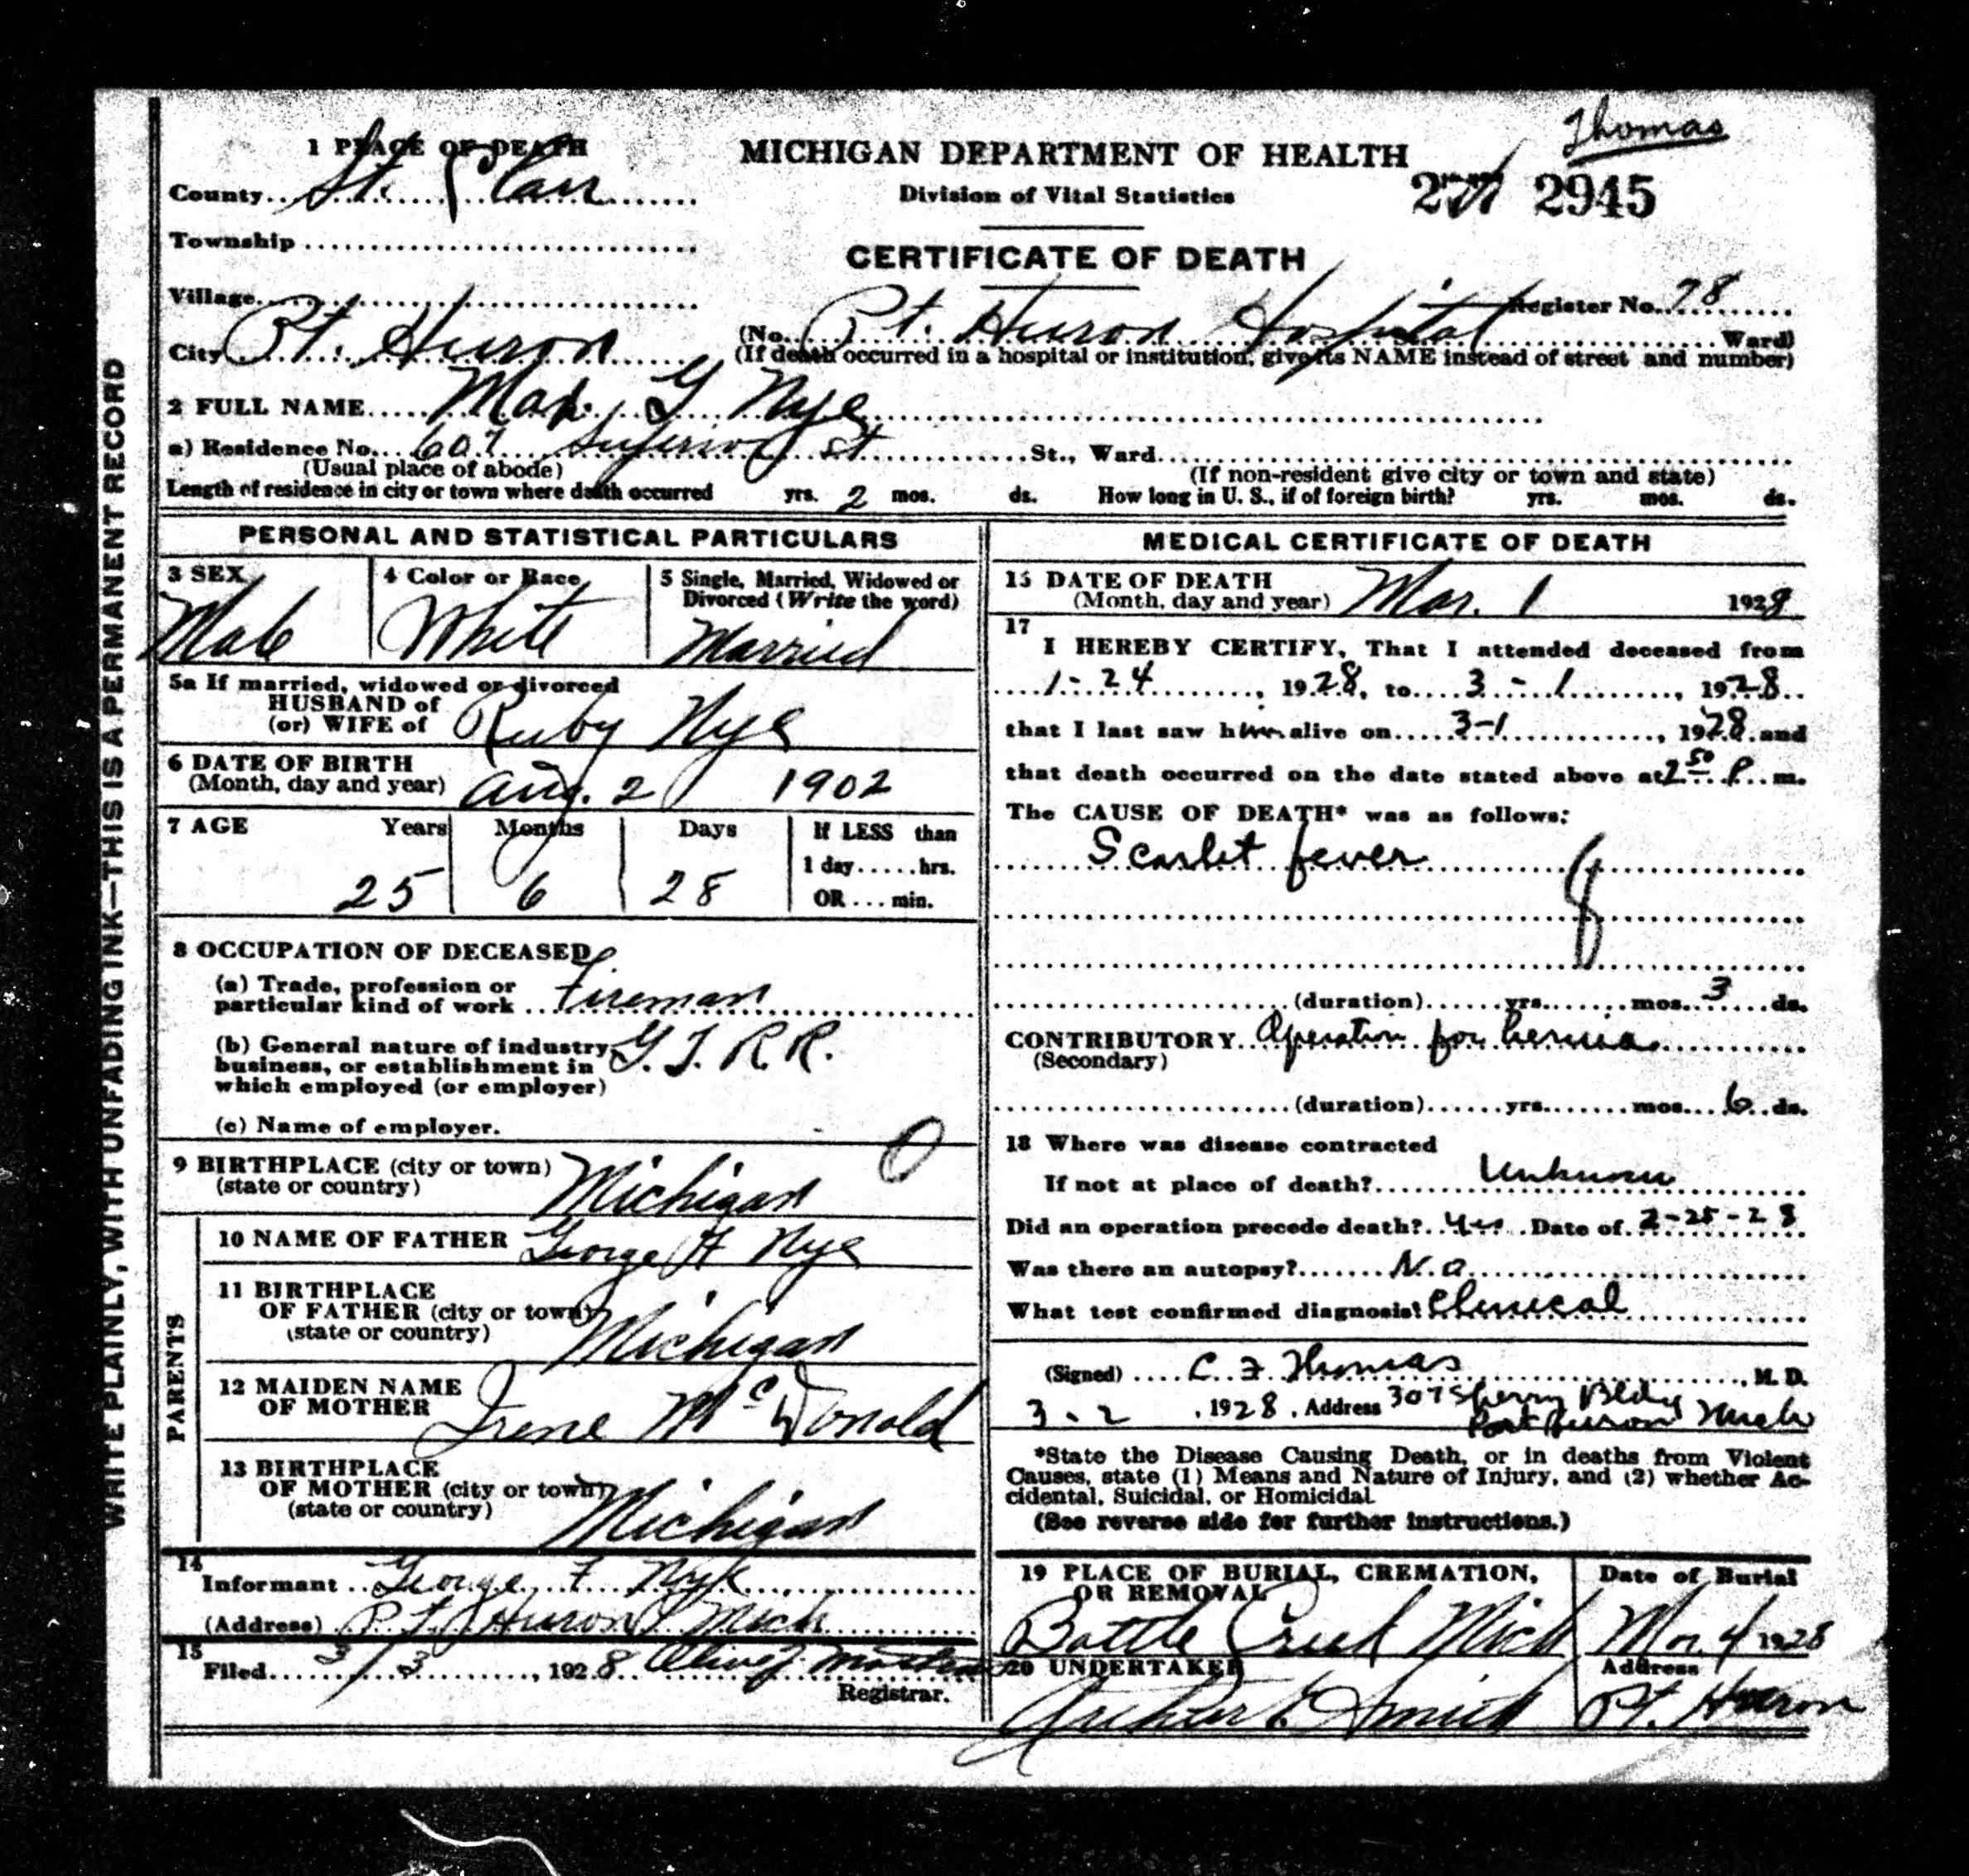 Thomas
1 PLACE OF DEATH
MICHIGAN DEPARTMENT OF HEALTH
County St. Clair
Division of Vital Statistics
2945
Township
CERTIFICATE OF DEATH
Village
Register No. 78
City Pt. Huron (No. Pt. Huron Hospital Ward)
(If death occurred in a hospital or institution, give its NAME instead of street and number)
2 FULL NAME Max G Nye
a) Residence No. 607 Superior St St., Ward
(Usual place of abode) (If non-resident give city or town and state)
Length of residence in city or town where death occurred yrs. 2 mos. ds. How long in U. S., if of foreign birth? yrs. mos. ds.
WRITE PLAINLY, WITH UNFADING INK—THIS IS A PERMANENT RECORD
PERSONAL AND STATISTICAL PARTICULARS
3 SEX
Male
4 Color or Race
White
5 Single, Married, Widowed or
Divorced (Write the word)
Married
5a If married, widowed or divorced
HUSBAND of
(or) WIFE of Ruby Nye
6 DATE OF BIRTH
(Month, day and year) Aug. 2 1902
7 AGE Years Months Days If LESS than
1 day......hrs.
25 6 28 OR ... min.
8 OCCUPATION OF DECEASED
(a) Trade, profession or
particular kind of work Fireman
(b) General nature of industry
business, or establishment in
which employed (or employer) G. T. R. R.
(c) Name of employer.
0
9 BIRTHPLACE (city or town)
(state or country) Michigan
PARENTS
10 NAME OF FATHER George H Nye
11 BIRTHPLACE
OF FATHER (city or town)
(state or country) Michigan
12 MAIDEN NAME
OF MOTHER Irene McDonald
13 BIRTHPLACE
OF MOTHER (city or town)
(state or country) Michigan
14
Informant George F Nye
(Address) Pt. Huron Mich
15
Filed 3/3, 1928
Registrar.
MEDICAL CERTIFICATE OF DEATH
15 DATE OF DEATH
(Month, day and year) Mar. 1 1928
17
I HEREBY CERTIFY, That I attended deceased from
1-24, 1928, to 3-1, 1928
that I last saw him alive on 3-1, 1928 and
that death occurred on the date stated above at 2 50 P m.
The CAUSE OF DEATH* was as follows:
Scarlet fever
(duration) yrs. mos. 3 ds.
CONTRIBUTORY Operation for hernia
(Secondary)
(duration) yrs. mos. 6 ds.
18 Where was disease contracted
If not at place of death? Unknown
Did an operation precede death? Yes Date of 2-25-28
Was there an autopsy? No
What test confirmed diagnosis? Clinical
(Signed) C. F. Thomas, M. D.
3-2, 1928, Address 307 Sperry Bldg
Port Huron Mich
*State the Disease Causing Death, or in deaths from Violent
Causes, state (1) Means and Nature of Injury, and (2) whether Ac-
cidental, Suicidal, or Homicidal
(See reverse side for further instructions.)
19 PLACE OF BURIAL, CREMATION,
OR REMOVAL
Battle Creek Mich
Date of Burial
Mar 4 1928
20 UNDERTAKER
Arthur Smith
Address
Pt. Huron